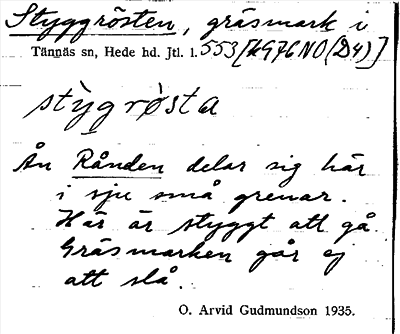 Styggrösten, gräsmark i
Tännäs sn, Hede hd. Jtl. l. 553 [49G76NO(D4)]
stỳgrǿsta
Ån Rånden delar sig här
i sju små grenar.
Här är styggt att gå.
Gräsmarken går ej
att slå.
O. Arvid Gudmundson 1935.